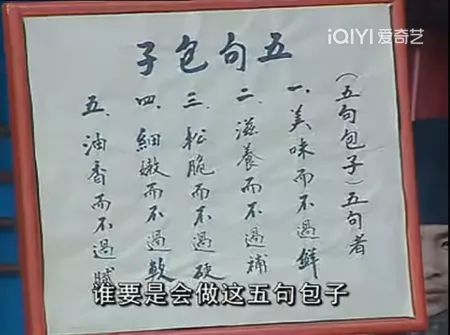 iQIYI 爱奇艺
五句包子
（五句包子）五句者
一.美味而不過鮮
二.滋養而不過補
三.松脆而不過硬
四.細嫩而不過軟
五.油香而不過膩
谁要是会做这五句包子